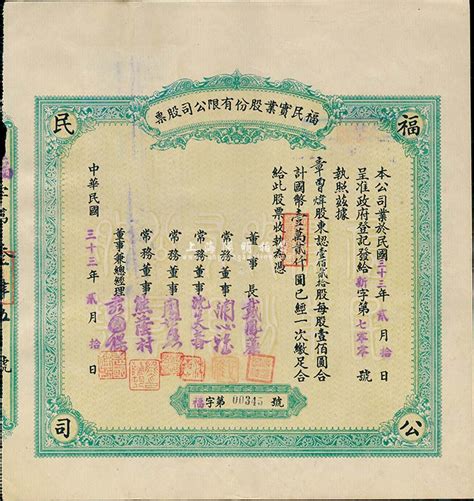 福民實業股份有限公司股票
福
民
公
司
本公司業於民國三十三年貳月拾日
呈准政府登記發給新字第七零零號
執照茲據
章曹煒股東認壹佰貳拾股每股壹佰圓合
計國幣壹萬貳仟圓已經一次繳足合
給此股票收執為憑
董事長
常務董事
常務董事
常務董事
常務董事 熊蔭村
董事兼總經理
中華民國三十三年貳月拾日
福字第00345號